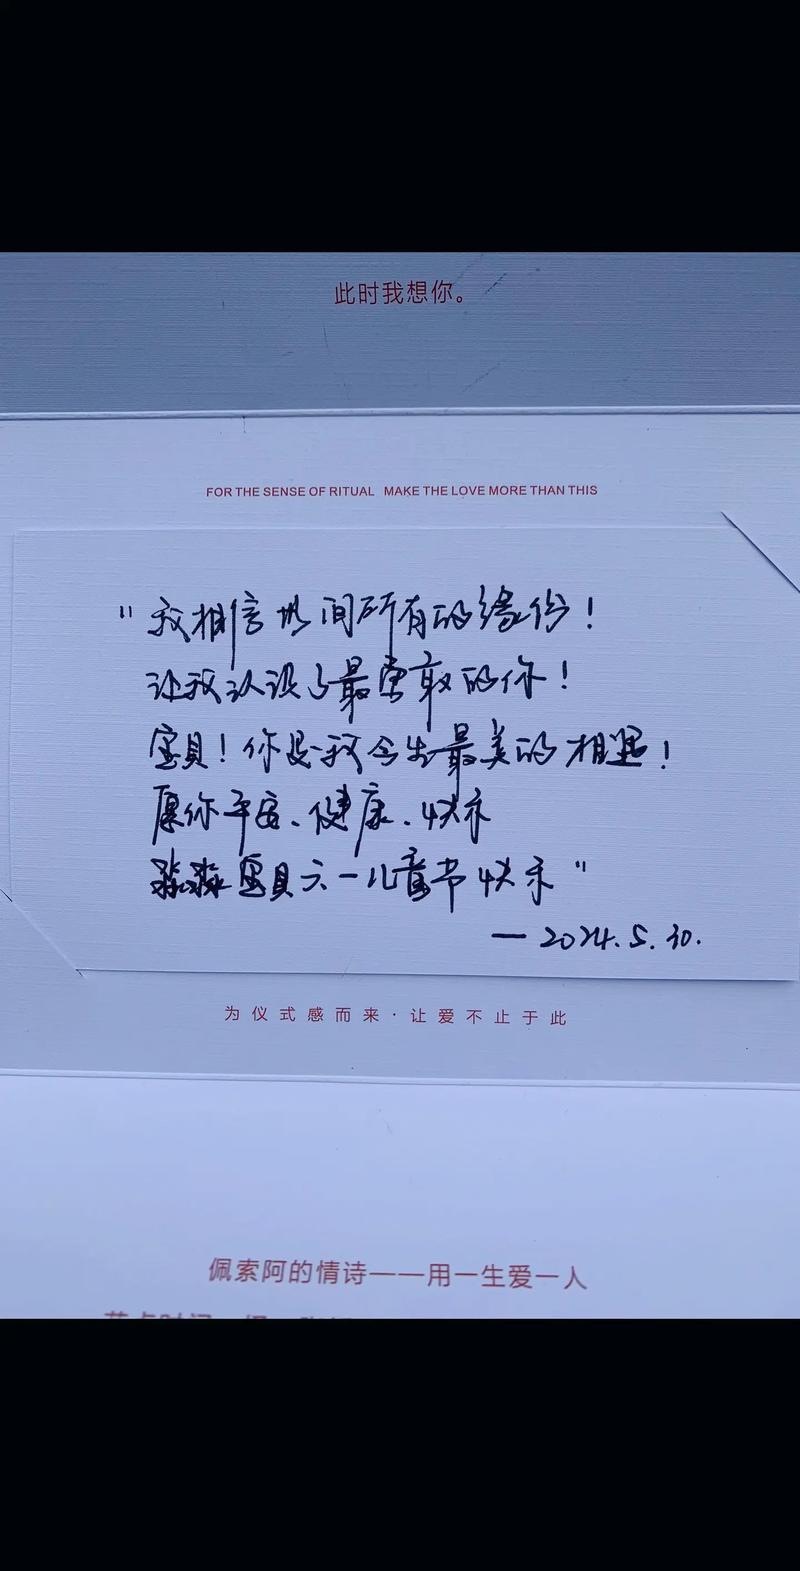 此时我想你。
FOR THE SENSE OF RITUAL MAKE THE LOVE MORE THAN THIS
"我相信世间所有的缘份！
让我认识了最勇敢的你！
宝贝！你是我今生最美的相遇！
愿你平安、健康、快乐
宝贝六一儿童节快乐"
—2024.5.30.
为仪式感而来·让爱不止于此
佩索阿的情诗——用一生爱一人